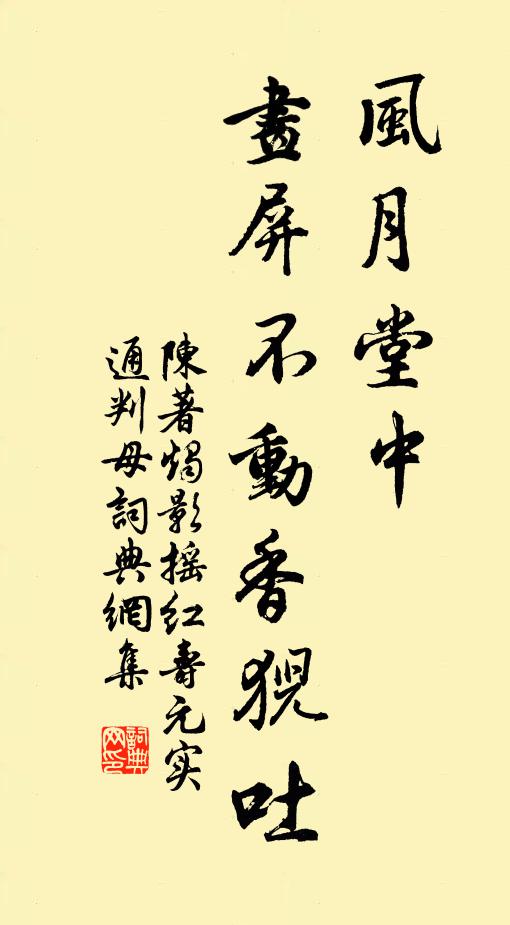 風月堂中
畫屏不動香猊吐
陳著燭影摇红壽元实
通判母詞典網集
詞典网印